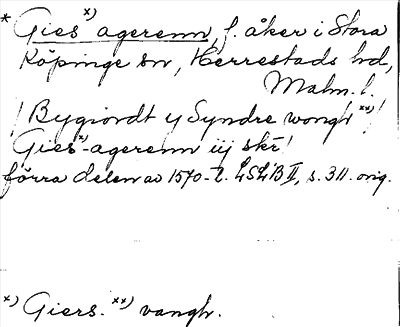 * Giesˣ⁾ agerenn, f. åker i Stora
Köpinge sn, Herrestads hd,
Malm. l.
! Bygiordt y Syndre wonghˣˣ⁾!
Giesˣ⁾-agerenn iij skr̄!
förra delen av 1570-t. LSLB II, s. 311. orig.
ˣ⁾ Giers. ˣˣ⁾ vangh.